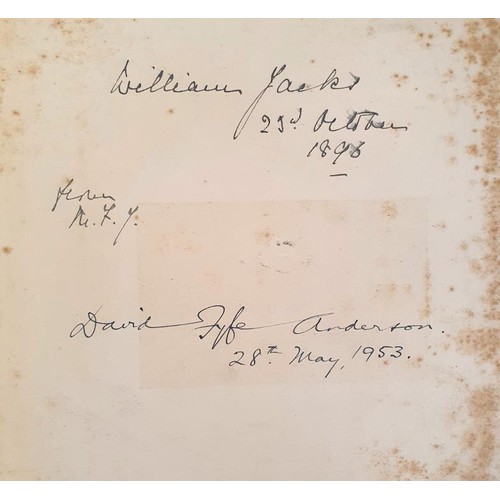 William Jacks
23d October
1896
from
M. F. J.
David Fyfe Anderson.
28th May, 1953.